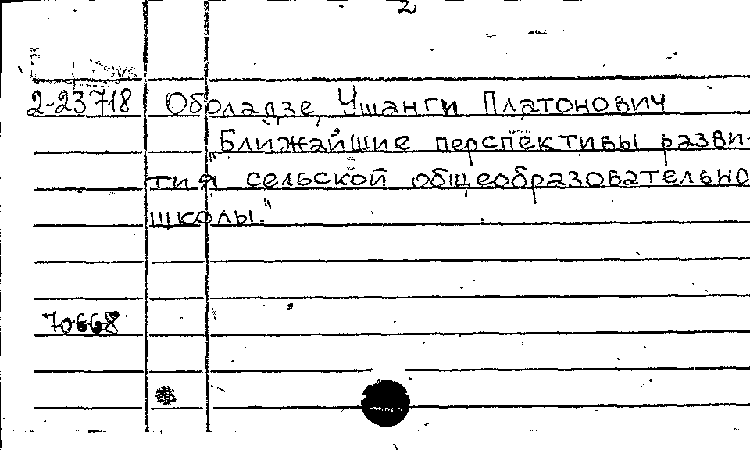 2
2-23718 Оболадзе, Ушанги Платонович
"Ближайшие перспективы разви-
тия сельской общеобразовательно
школы."
70668